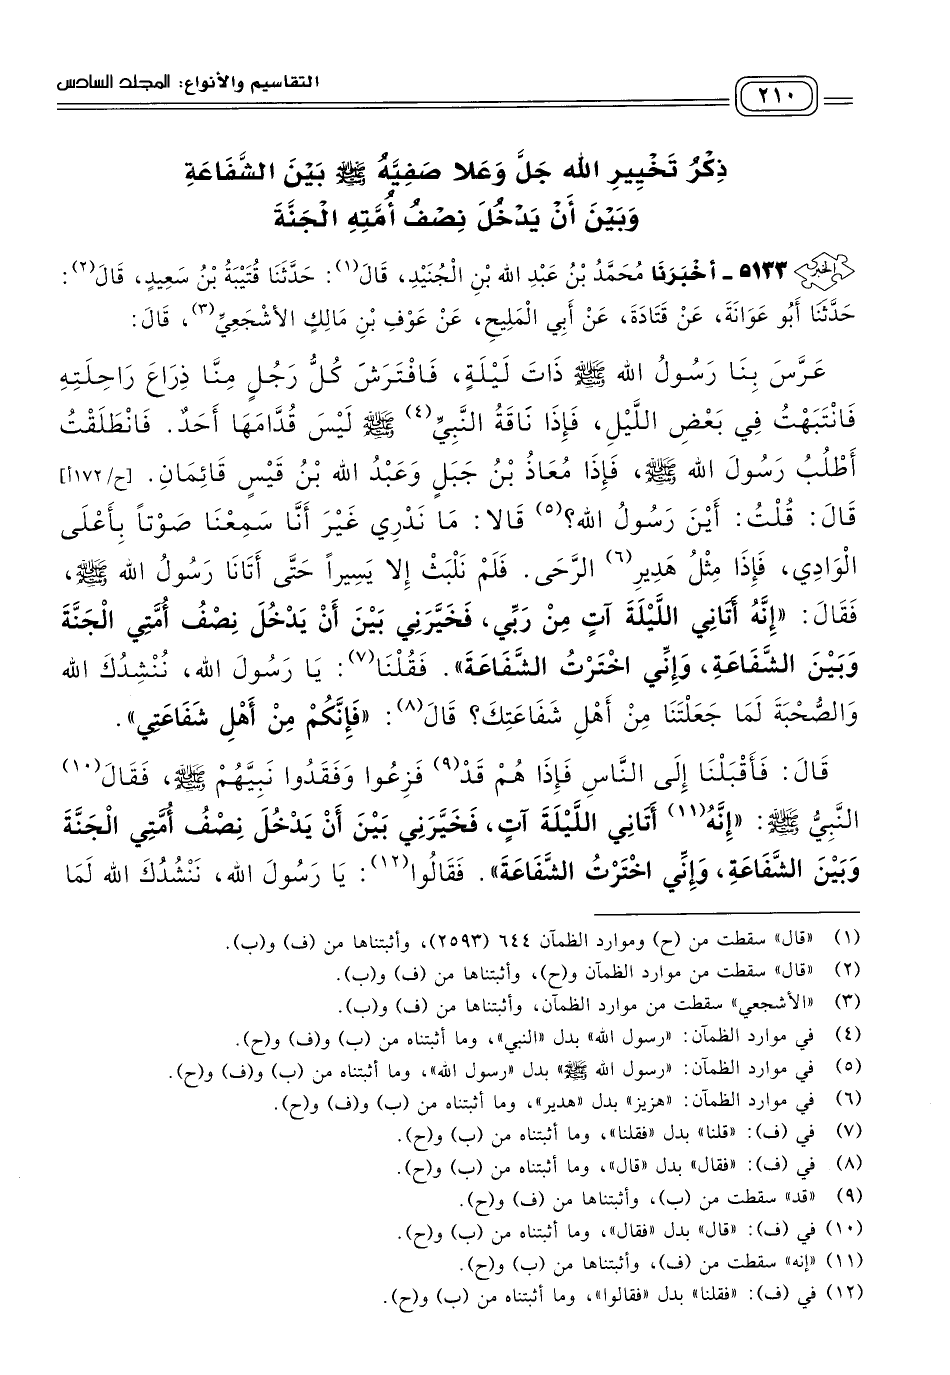 التقاسيم والأنواع: المجلد السادس
٢١٠
ذِكْرُ تَخْيِيرِ الله جَلَّ وَعَلا صَفِيَّهُ ﷺ بَيْنَ الشَّفَاعَةِ
وَبَيْنَ أَنْ يَدْخُلَ نِصْفُ أُمَّتِهِ الْجَنَّةَ
٥١٣٣ - أَخْبَرَنَا مُحَمَّدُ بْنُ عَبْدِ الله بْنِ الْجُنَيْدِ، قَالَ(١): حَدَّثَنَا قُتَيْبَةُ بْنُ سَعِيدٍ، قَالَ(٢):
حَدَّثَنَا أَبُو عَوَانَةَ، عَنْ قَتَادَةَ، عَنْ أَبِي الْمَلِيحِ، عَنْ عَوْفِ بْنِ مَالِكٍ الأَشْجَعِيِّ(٣)، قَالَ:
عَرَّسَ بِنَا رَسُولُ الله ﷺ ذَاتَ لَيْلَةٍ، فَافْتَرَشَ كُلُّ رَجُلٍ مِنَّا ذِرَاعَ رَاحِلَتِهِ
فَانْتَبَهْتُ فِي بَعْضِ اللَّيْلِ، فَإِذَا نَاقَةُ النَّبِيِّ(٤) ﷺ لَيْسَ قُدَّامَهَا أَحَدٌ. فَانْطَلَقْتُ
أَطْلُبُ رَسُولَ الله ﷺ، فَإِذَا مُعَاذُ بْنُ جَبَلٍ وَعَبْدُ الله بْنُ قَيْسٍ قَائِمَانِ. [ح/١٧٢أ]
قَالَ: قُلْتُ: أَيْنَ رَسُولُ الله؟(٥) قَالا: مَا نَدْرِي غَيْرَ أَنَّا سَمِعْنَا صَوْتاً بِأَعْلَى
الْوَادِي، فَإِذَا مِثْلُ هَدِيرِ(٦) الرَّحَى. فَلَمْ نَلْبَثْ إِلا يَسِيراً حَتَّى أَتَانَا رَسُولُ الله ﷺ،
فَقَالَ: «إِنَّهُ أَتَانِي اللَّيْلَةَ آتٍ مِنْ رَبِّي، فَخَيَّرَنِي بَيْنَ أَنْ يَدْخُلَ نِصْفُ أُمَّتِي الْجَنَّةَ
وَبَيْنَ الشَّفَاعَةِ، وَإِنِّي اخْتَرْتُ الشَّفَاعَةَ». فَقُلْنَا(٧): يَا رَسُولَ الله، نُنْشِدُكَ الله
وَالصُّحْبَةَ لَمَا جَعَلْتَنَا مِنْ أَهْلِ شَفَاعَتِكَ؟ قَالَ(٨): «فَإِنَّكُمْ مِنْ أَهْلِ شَفَاعَتِي».
قَالَ: فَأَقْبَلْنَا إِلَى النَّاسِ فَإِذَا هُمْ قَدْ(٩) فَزِعُوا وَفَقَدُوا نَبِيَّهُمْ ﷺ، فَقَالَ(١٠)
النَّبِيُّ ﷺ: «إِنَّهُ(١١) أَتَانِي اللَّيْلَةَ آتٍ، فَخَيَّرَنِي بَيْنَ أَنْ يَدْخُلَ نِصْفُ أُمَّتِي الْجَنَّةَ
وَبَيْنَ الشَّفَاعَةِ، وَإِنِّي اخْتَرْتُ الشَّفَاعَةَ». فَقَالُوا(١٢): يَا رَسُولَ الله، نَنْشُدُكَ الله لَمَا
(١) «قال» سقطت من (ح) وموارد الظمآن ٦٤٤ (٢٥٩٣)، وأثبتناها من (ف) و(ب).
(٢) «قال» سقطت من موارد الظمآن و(ح)، وأثبتناها من (ف) و(ب).
(٣) «الأشجعي» سقطت من موارد الظمآن، وأثبتناها من (ف) و(ب).
(٤) في موارد الظمآن: «رسول الله» بدل «النبي»، وما أثبتناه من (ب) و(ف) و(ح).
(٥) في موارد الظمآن: «رسول الله ﷺ» بدل «رسول الله»، وما أثبتناه من (ب) و(ف) و(ح).
(٦) في موارد الظمآن: «هزيز» بدل «هدير»، وما أثبتناه من (ب) و(ف) و(ح).
(٧) في (ف): «قلنا» بدل «فقلنا»، وما أثبتناه من (ب) و(ح).
(٨) في (ف): «فقال» بدل «قال»، وما أثبتناه من (ب) و(ح).
(٩) «قد» سقطت من (ب)، وأثبتناها من (ف) و(ح).
(١٠) في (ف): «قال» بدل «فقال»، وما أثبتناه من (ب) و(ح).
(١١) «إنه» سقطت من (ف)، وأثبتناها من (ب) و(ح).
(١٢) في (ف): «فقلنا» بدل «فقالوا»، وما أثبتناه من (ب) و(ح).